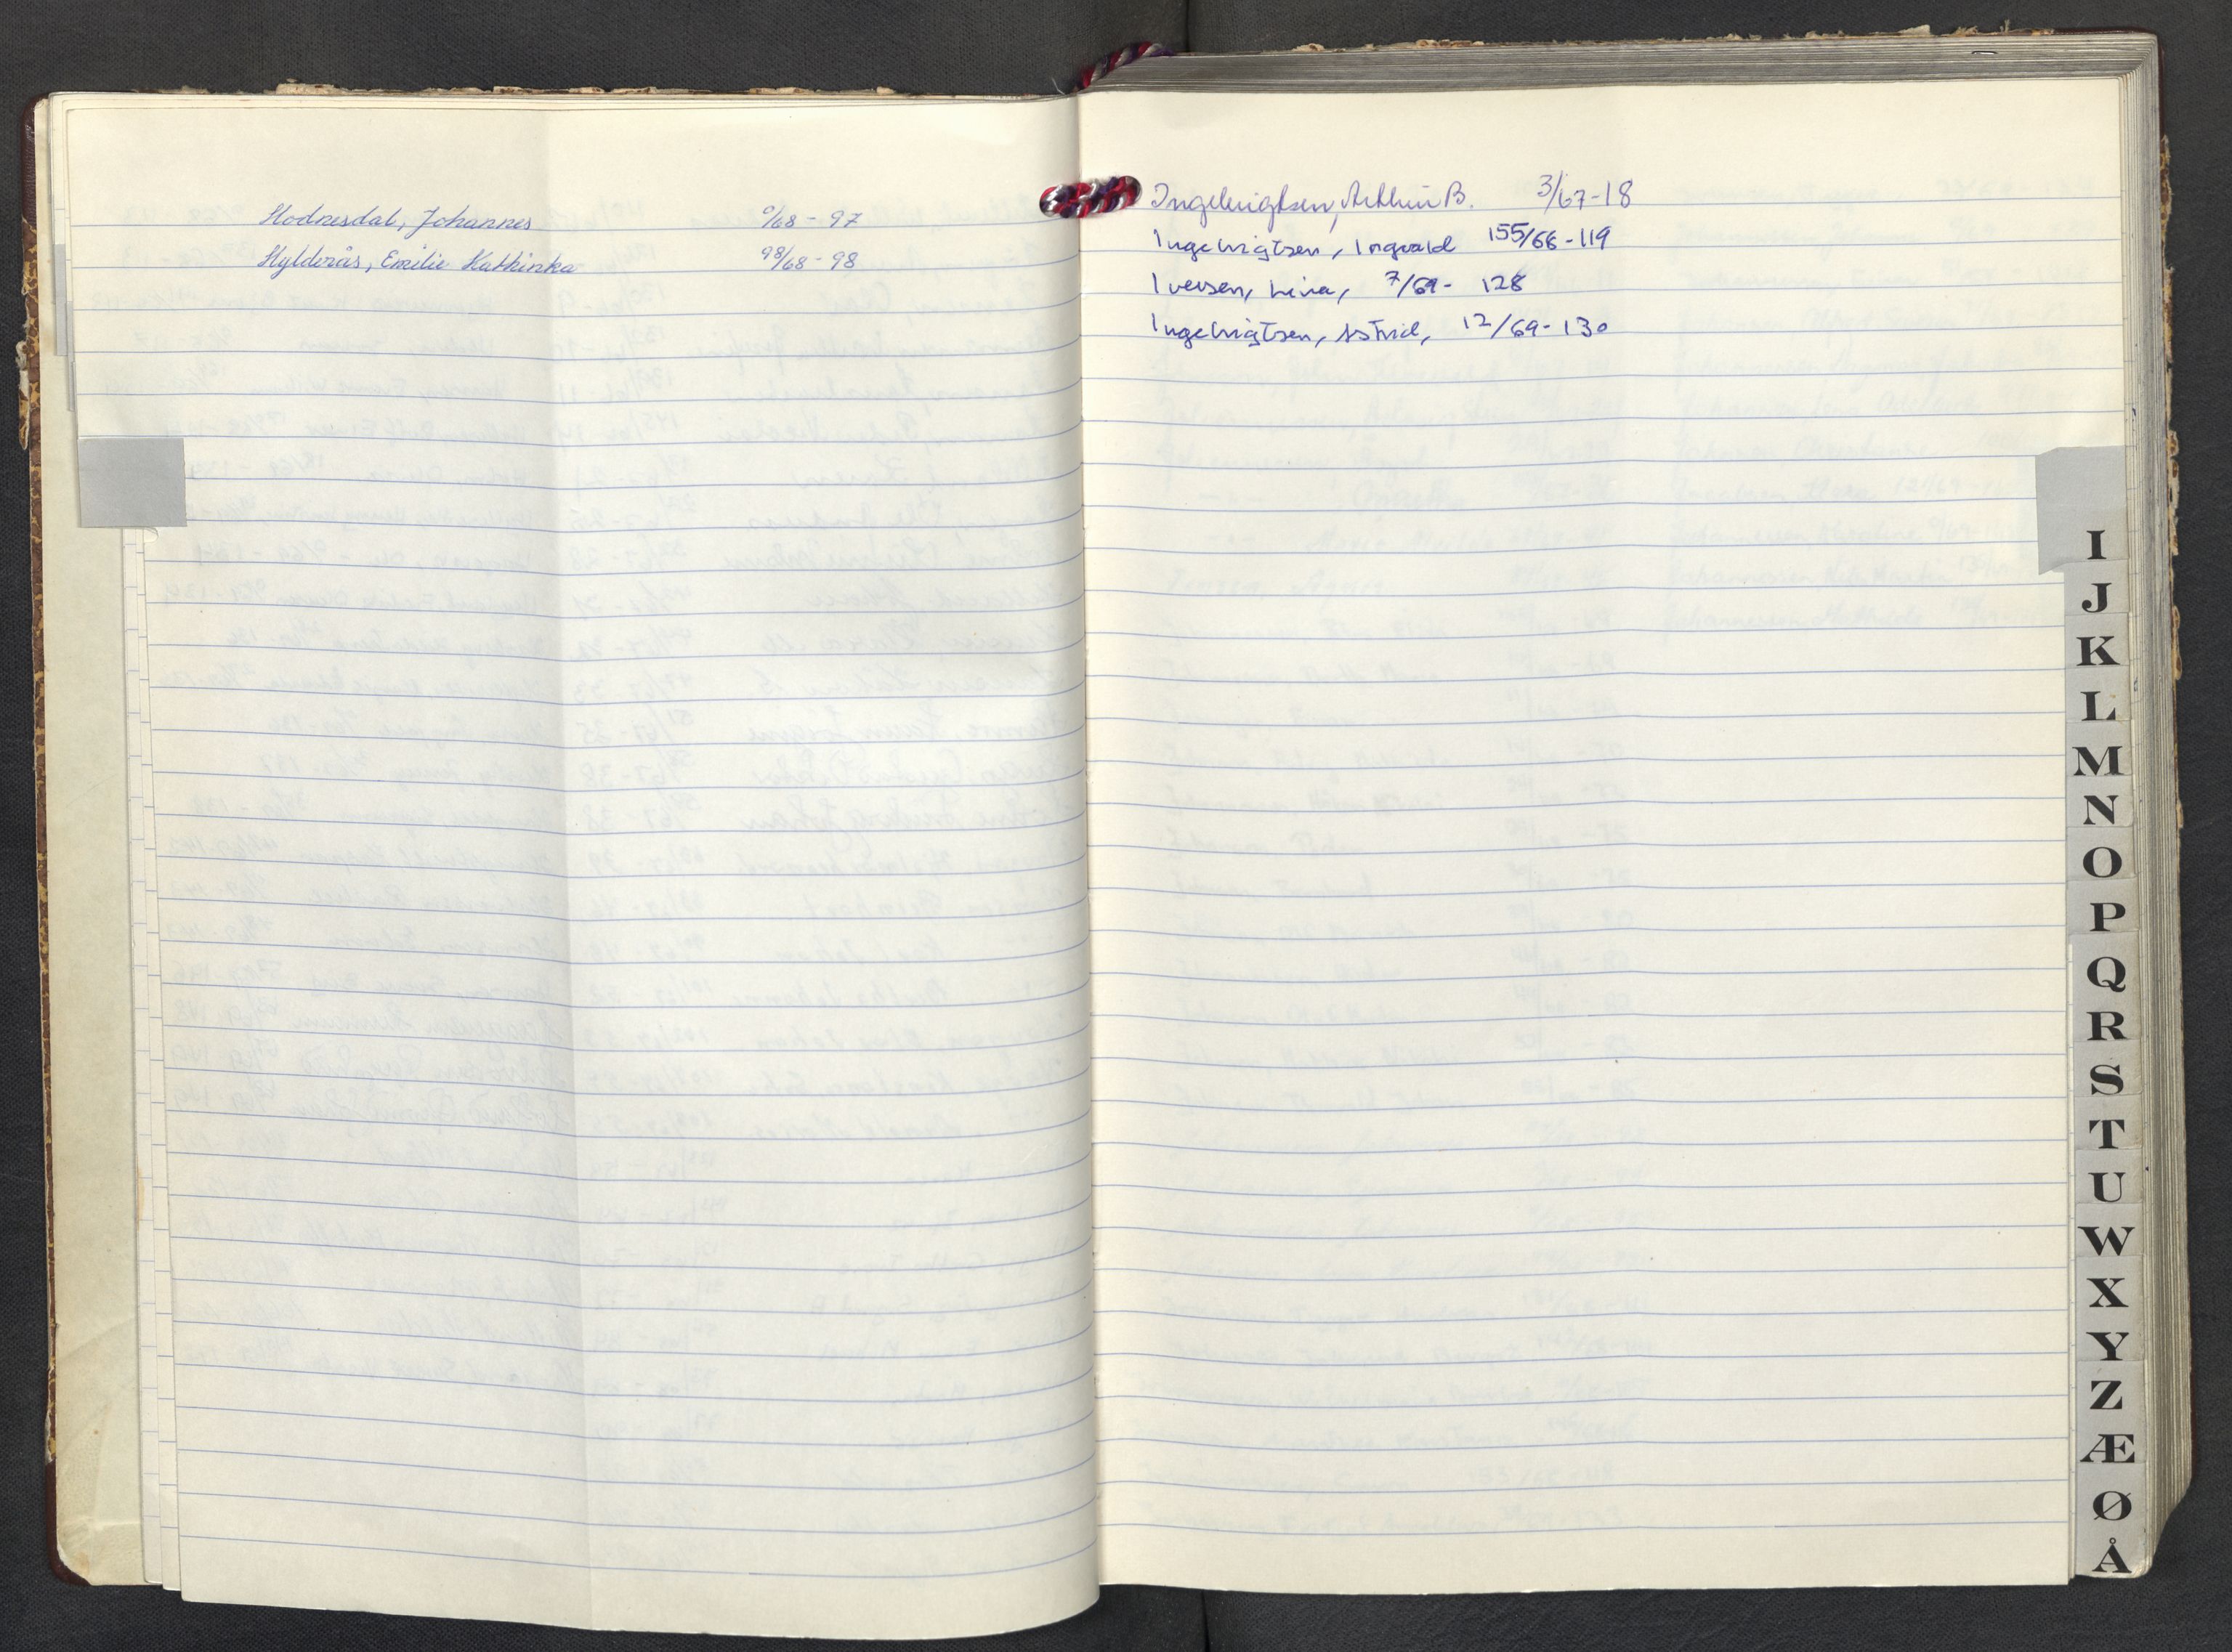 Hodnesdal, Johannes 9/68 - 97
Hylderås, Emilie Kathinka 98/68 - 98
Ingebrigtsen, Arthur B. 3/67-18
Ingebrigtsen, Ingvald 155/66-119
Iversen, Lina, 7/69- 128
Ingebrigtsen, Astrid, 12/69-130
I
J
K
L
M
N
O
P
Q
R
S
T
U
W
X
Y
Z
Æ
Ø
Å